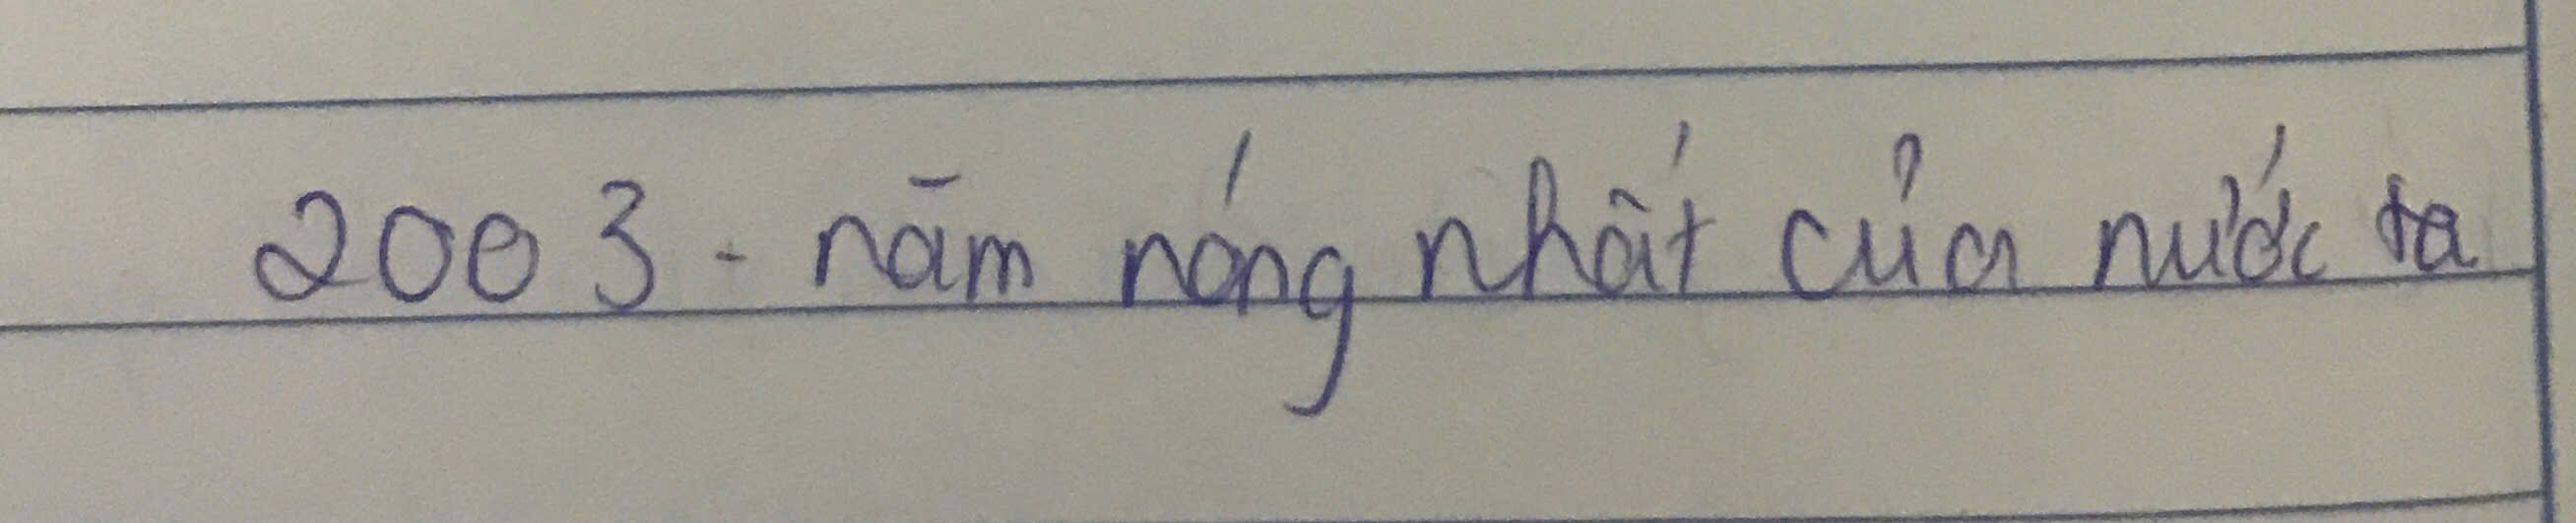 2003 - năm nóng nhất của nước ta